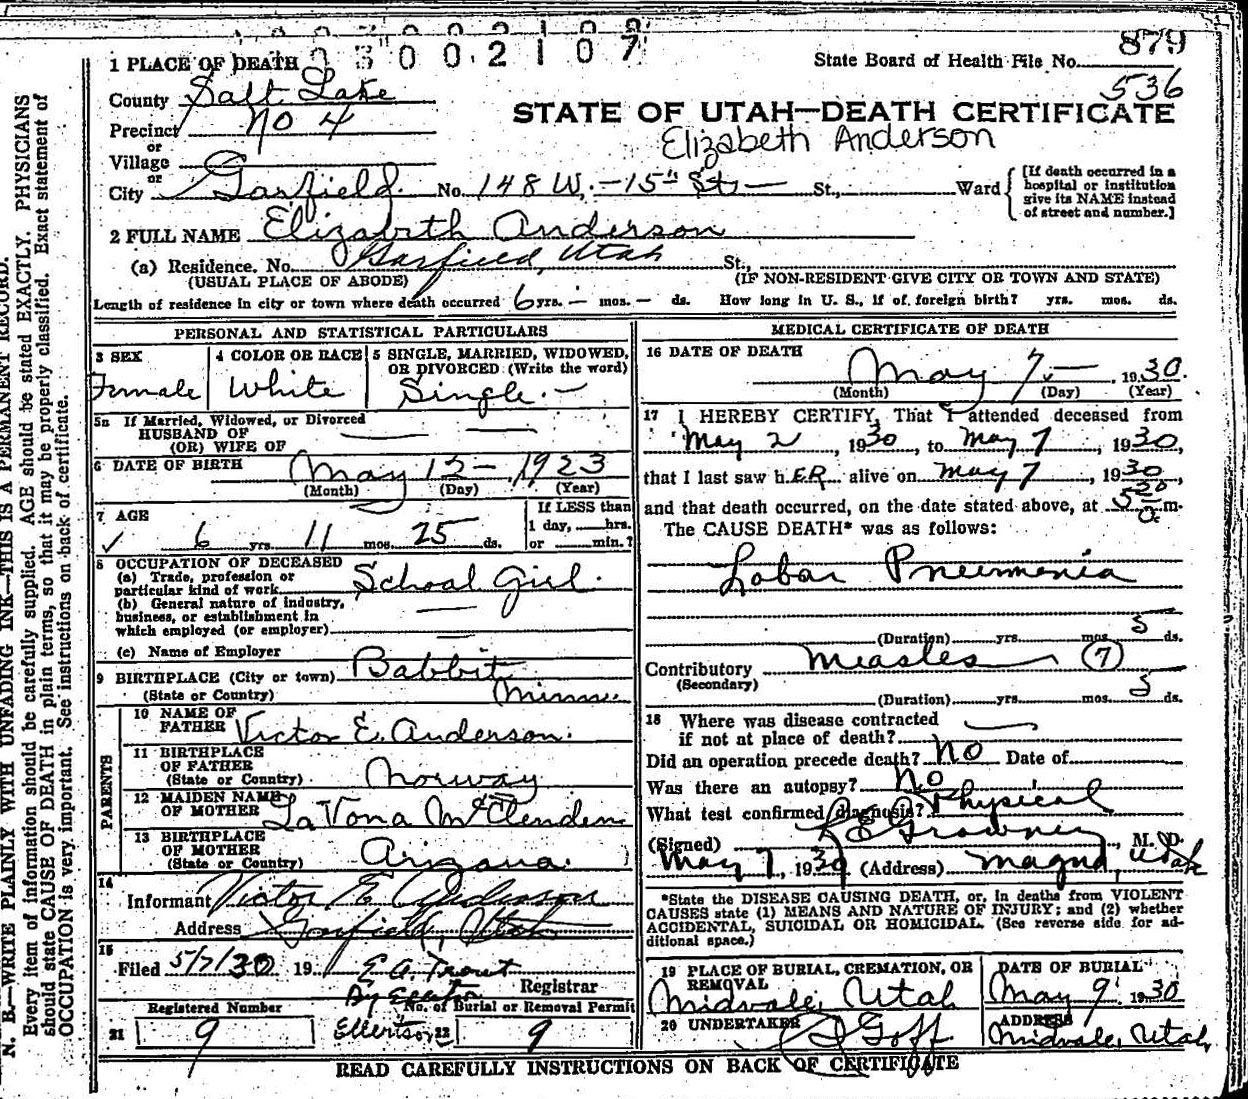 3002107
879
State Board of Health File No.
536
1 PLACE OF DEATH
County Salt Lake
STATE OF UTAH—DEATH CERTIFICATE
Precinct No 4
Elizabeth Anderson
or
Village
or
City Garfield. No. 148 W. - 15th St. — St., Ward
[If death occurred in a hospital or institution give its NAME instead of street and number.]
2 FULL NAME Elizabeth Anderson
(a) Residence. No. Garfield, Utah St.,
(USUAL PLACE OF ABODE) (IF NON-RESIDENT GIVE CITY OR TOWN AND STATE)
Length of residence in city or town where death occurred 6 yrs. - mos. - ds. How long in U. S., if of foreign birth? yrs. mos. ds.
PERSONAL AND STATISTICAL PARTICULARS
3 SEX
Female
4 COLOR OR RACE
White
5 SINGLE, MARRIED, WIDOWED,
OR DIVORCED (Write the word)
Single. —
5a If Married, Widowed, or Divorced
HUSBAND OF
(OR) WIFE OF
6 DATE OF BIRTH May 12 - 1923
(Month) (Day) (Year)
7 AGE
6 yrs. 11 mos. 25 ds.
If LESS than
1 day, hrs.
or min.?
8 OCCUPATION OF DECEASED
(a) Trade, profession or
particular kind of work School Girl.
(b) General nature of industry,
business, or establishment in
which employed (or employer)
(c) Name of Employer
9 BIRTHPLACE (City or town) Babbit
(State or Country) Minn
PARENTS
10 NAME OF
FATHER Victor E. Anderson.
11 BIRTHPLACE
OF FATHER
(State or Country) Norway
12 MAIDEN NAME
OF MOTHER La Vona McClenden
13 BIRTHPLACE
OF MOTHER
(State or Country) Arizona.
14
Informant Victor E Anderson
Address Garfield, Utah
15
Filed 5/7/30 19 E. A. Trout
Registrar
By Ellertson
Registered Number
21 9
No. of Burial or Removal Permit
Ellertson 22 9
MEDICAL CERTIFICATE OF DEATH
16 DATE OF DEATH
May 7 — 1930.
(Month) (Day) (Year)
17 I HEREBY CERTIFY, That I attended deceased from
May 2, 1930, to May 7, 1930,
that I last saw hER alive on May 7, 1930,
and that death occurred, on the date stated above, at 5 20 a m.
The CAUSE DEATH* was as follows:
Lobar Pneumonia
(Duration) yrs. mos. 5 ds.
Contributory Measles (7)
(Secondary)
(Duration) yrs. mos. 5 ds.
18 Where was disease contracted
if not at place of death?
Did an operation precede death? No Date of
Was there an autopsy? No
What test confirmed diagnosis? Physical
(Signed) M. D.
May 7, 1930 (Address) Magna, Utah
*State the DISEASE CAUSING DEATH, or, in deaths from VIOLENT
CAUSES state (1) MEANS AND NATURE OF INJURY; and (2) whether
ACCIDENTAL, SUICIDAL OR HOMICIDAL. (See reverse side for ad-
ditional space.)
19 PLACE OF BURIAL, CREMATION, OR
REMOVAL
Midvale, Utah
DATE OF BURIAL
May 9 1930
20 UNDERTAKER Goff
ADDRESS
Midvale, Utah,
READ CAREFULLY INSTRUCTIONS ON BACK OF CERTIFICATE
N. B.—WRITE PLAINLY WITH UNFADING INK—THIS IS A PERMANENT RECORD.
Every item of information should be carefully supplied. AGE should be stated EXACTLY. PHYSICIANS
should state CAUSE OF DEATH in plain terms, so that it may be properly classified. Exact statement of
OCCUPATION is very important. See instructions on back of certificate.